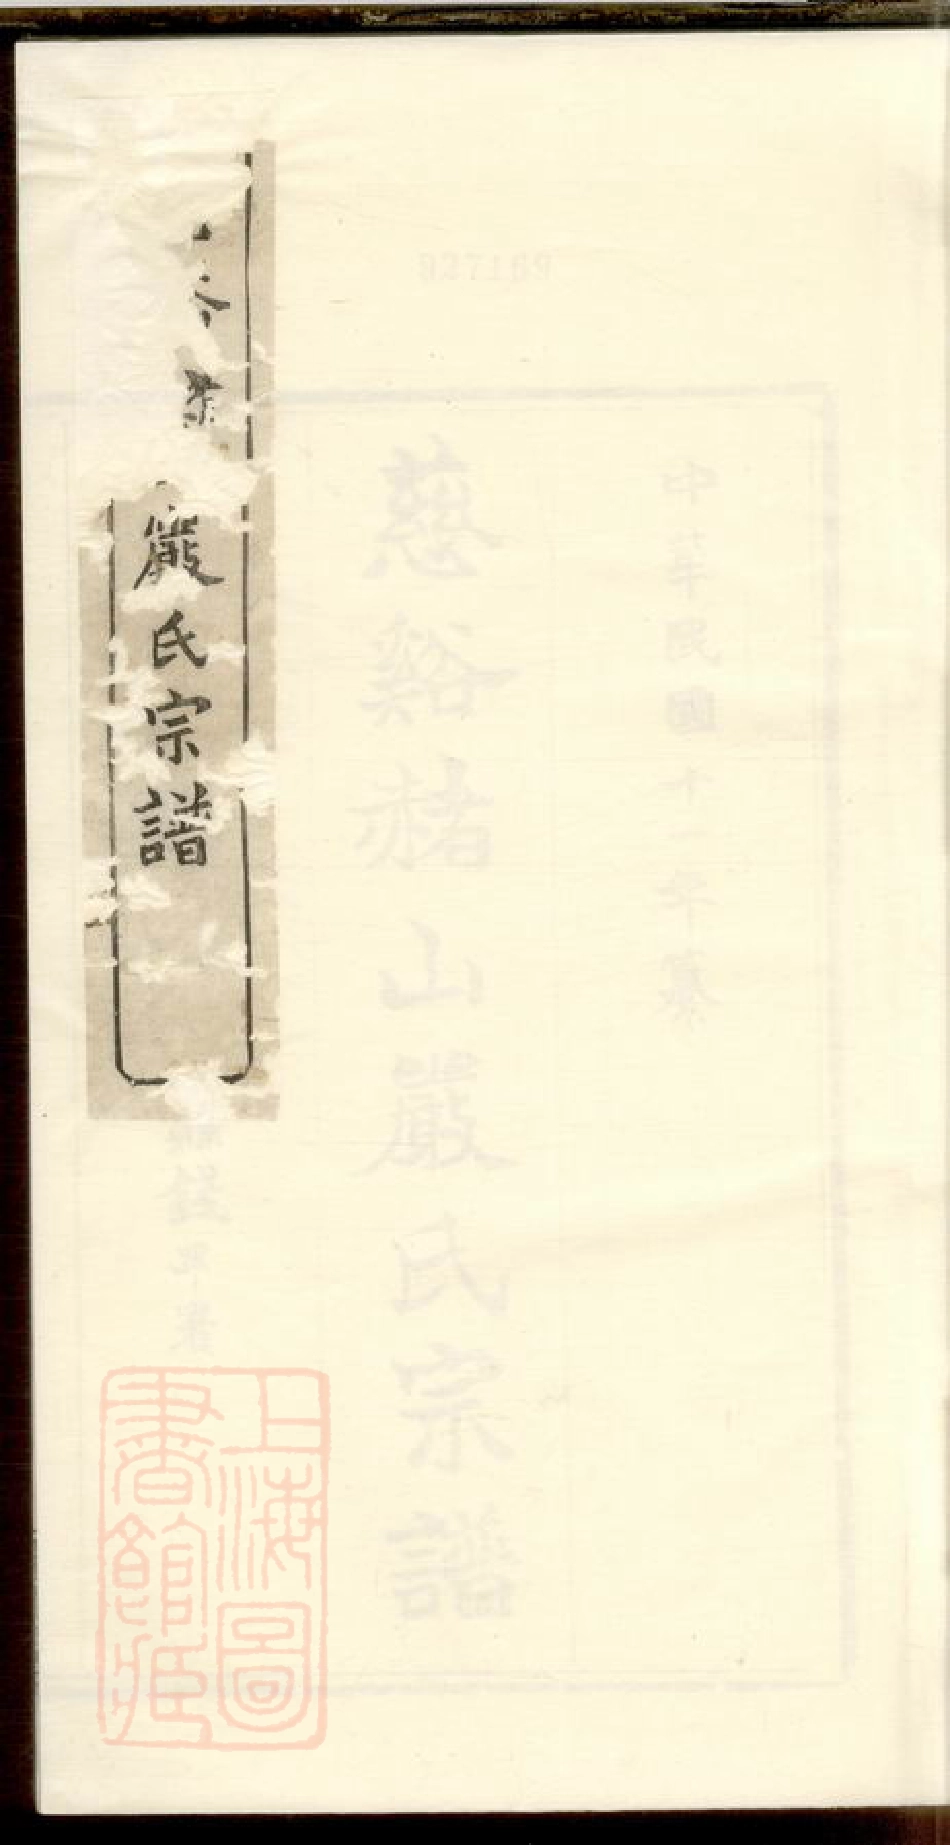 927169
中華民國十一年纂
慈谿赭山嚴氏宗譜
嚴氏宗譜
上海圖書館藏